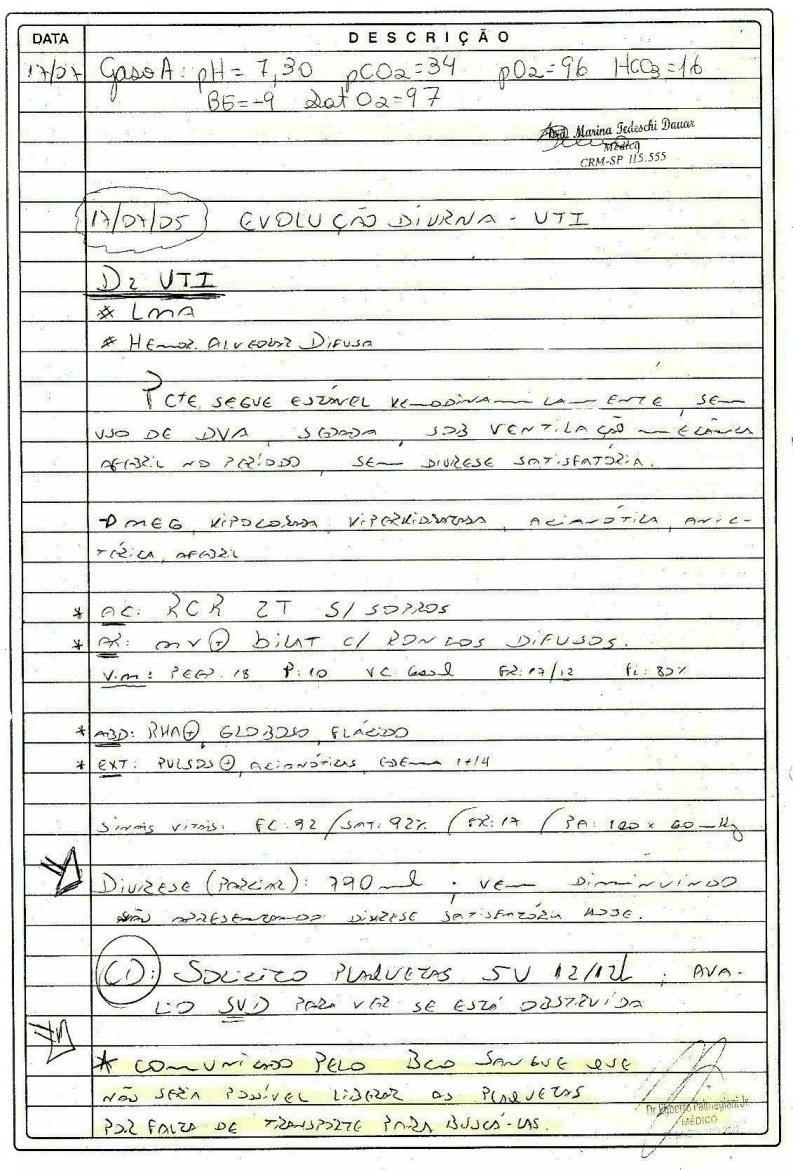 DATA DESCRIÇÃO
17/07 Gaso A: pH = 7,30 pCO2=34 pO2=96 HCO3=16
BE=-9 Sat O2=97
Dra Marina Tedeschi Dauar
Médica
CRM-SP 115.555
17/07/05 EVOLUÇÃO DIURNA - UTI
D2 UTI
* LMA
* HEMOR. ALVEOLAR DIFUSA
PCTE SEGUE ESTÁVEL HEMODINAMICAMENTE, SEM
USO DE DVA, SEDADA, SOB VENTILAÇÃO MECÂNICA
AFEBRIL NO PERÍODO, SEM DIURESE SATISFATÓRIA.
→ MEG, HIPOCORADA, HIPERHIDRATADA, ACIANÓTICA, ANIC-
TÉRICA, AFEBRIL
* AC: RCR 2T S/ SOPROS
* AR: MV⊕ BILAT C/ RONCOS DIFUSOS.
V.M: PEEP. 18 P: 10 VC: FR: 17/12 Fi: 80%
* ABD: RHA⊕, GLOBOSO, FLÁCIDO
* EXT: PULSOS⊕, ACIANÓTICAS, EDEMA 1+/4
SINAIS VITAIS: FC: 92 / SAT: 92% / FR: 17 / PA: 100 x 60 mmHg
DIURESE (PARCIAL): 790 ml; VEM DIMINUINDO
NÃO APRESENTANDO DIURESE SATISFATÓRIA HOJE.
CD: SOLICITO PLAQUETAS 5U 12/12h; AVA-
LIO SVD PARA VER SE ESTÁ OBSTRUÍDA
* COMUNICADO PELO BCO SANGUE QUE
NÃO SERIA POSSÍVEL LIBERAR AS PLAQUETAS
POR FALTA DE TRANSPORTE PARA BUSCÁ-LAS.
Palmegiani Jr.
MÉDICO